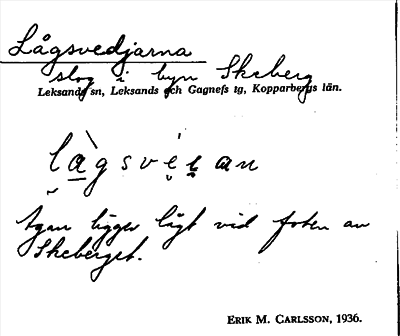 Lågsvedjarna
slog i byn Skeberg
Leksands sn, Leksands och Gagnefs tg, Kopparbergs län.
làgsvèṛan
Ägan ligger lågt vid foten av
Skeberget.
ERIK M. CARLSSON, 1936.